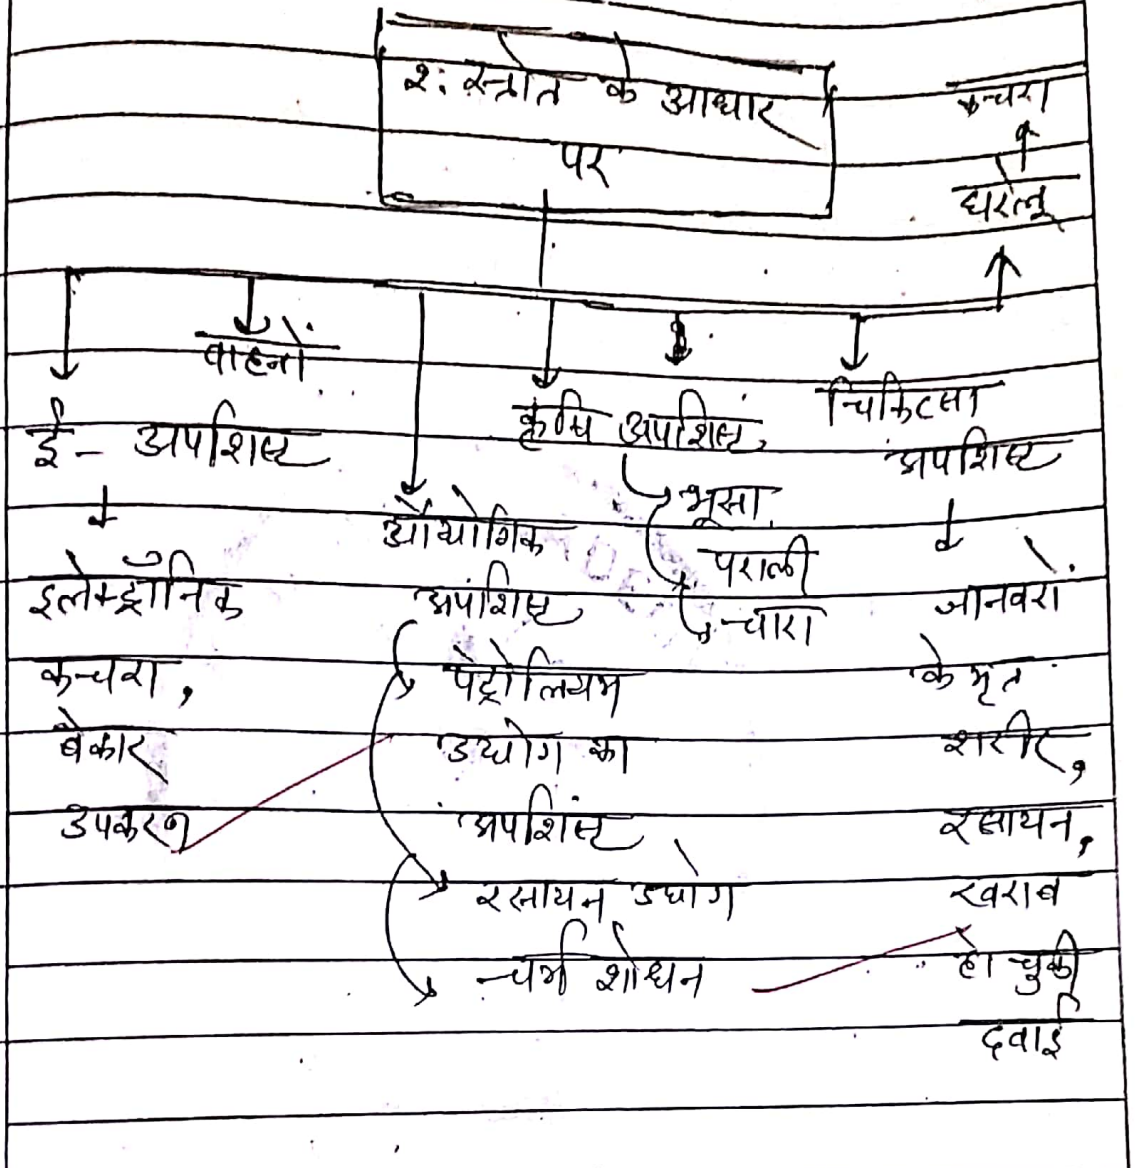 2: स्त्रोत के आधार
पर
कचरा
घरेलू
वाहनों
ई- अपशिष्ट
↓
इलेक्ट्रॉनिक
कचरा,
बेकार
उपकरण
औद्योगिक
अपशिष्ट
पेट्रोलियम
उद्योग का
अपशिष्ट
रसायन उद्योग
चर्म शोधन
कृषि अपशिष्ट
भूसा
पराली
चारा
चिकित्सा
अपशिष्ट
↓
जानवरों
के मृत
शरीर,
रसायन,
खराब
हो चुकी
दवाई